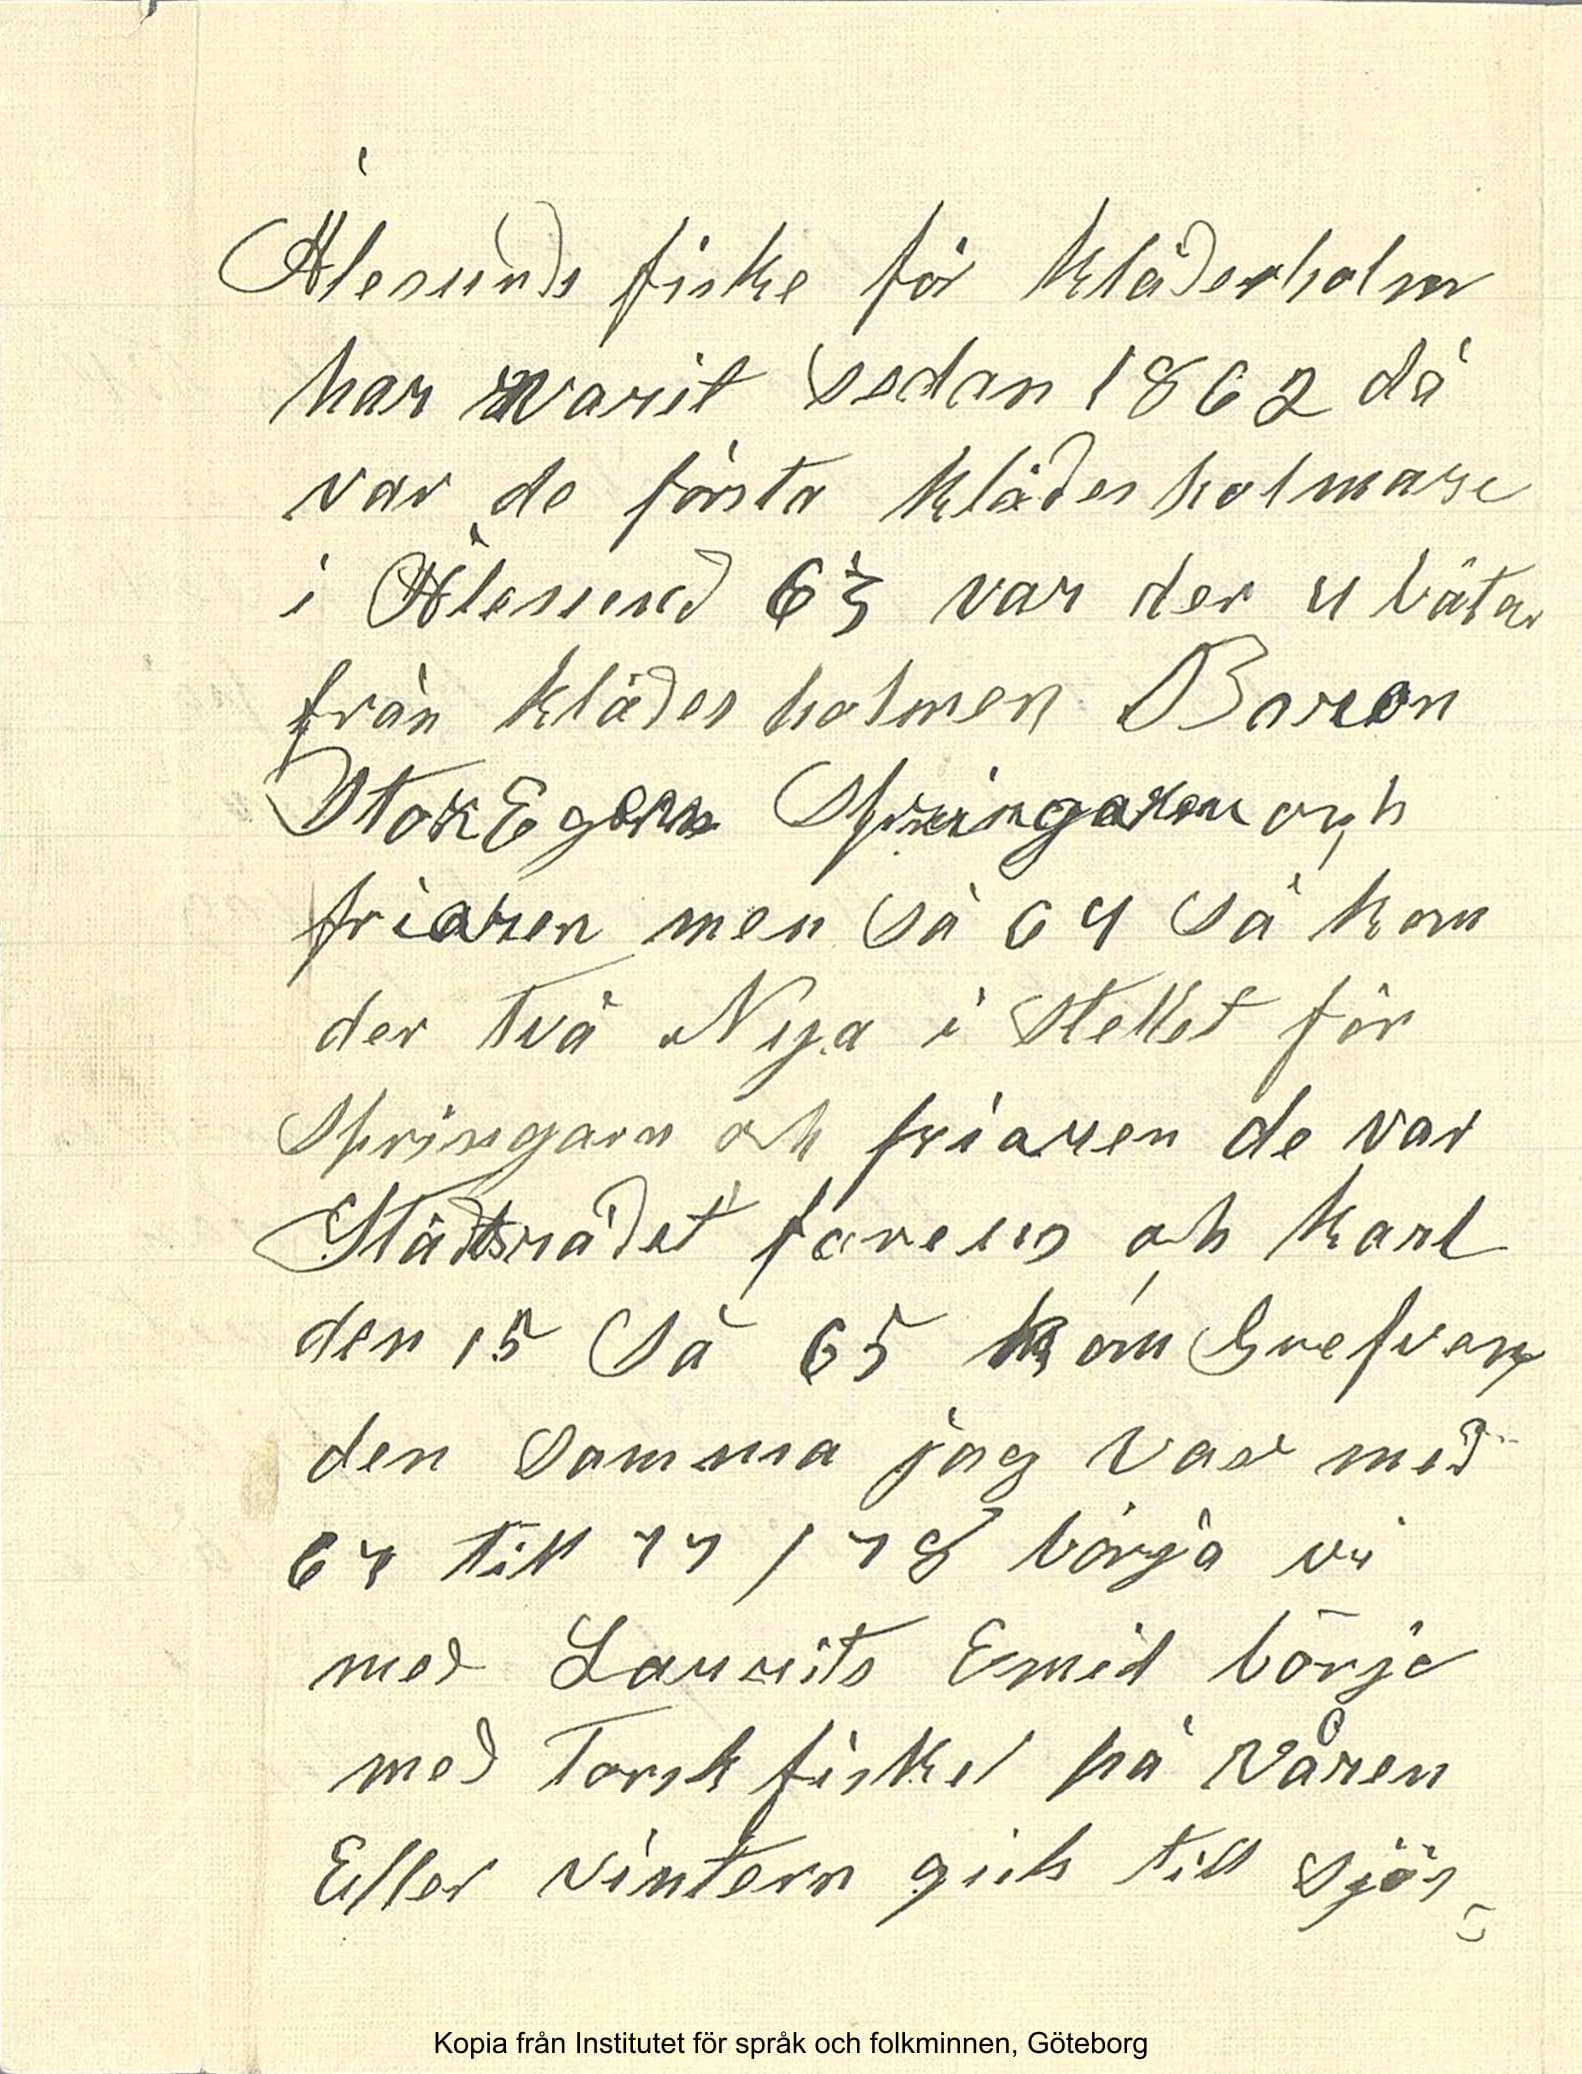 Ålesunds fiske för Klädesholm
har varit sedan 1862 då
var de första Klädesholmare
i Ålesund 63 var der 4 båtar
från Klädesholmen Baron
StorEgern Springaren och
friaren men så 64 så kom
der två Nya i Stellet för
Springarn och friaren de var
Stådtsrådet føreius och Karl
den 15 Så 65 kom Grefven
den samma jag var med
64 till 77 / 78 börja vi
med Laurits Emil börja
med Torskfisket på Våren
Eller vintern gick till sjös
Kopia från Institutet för språk och folkminnen, Göteborg